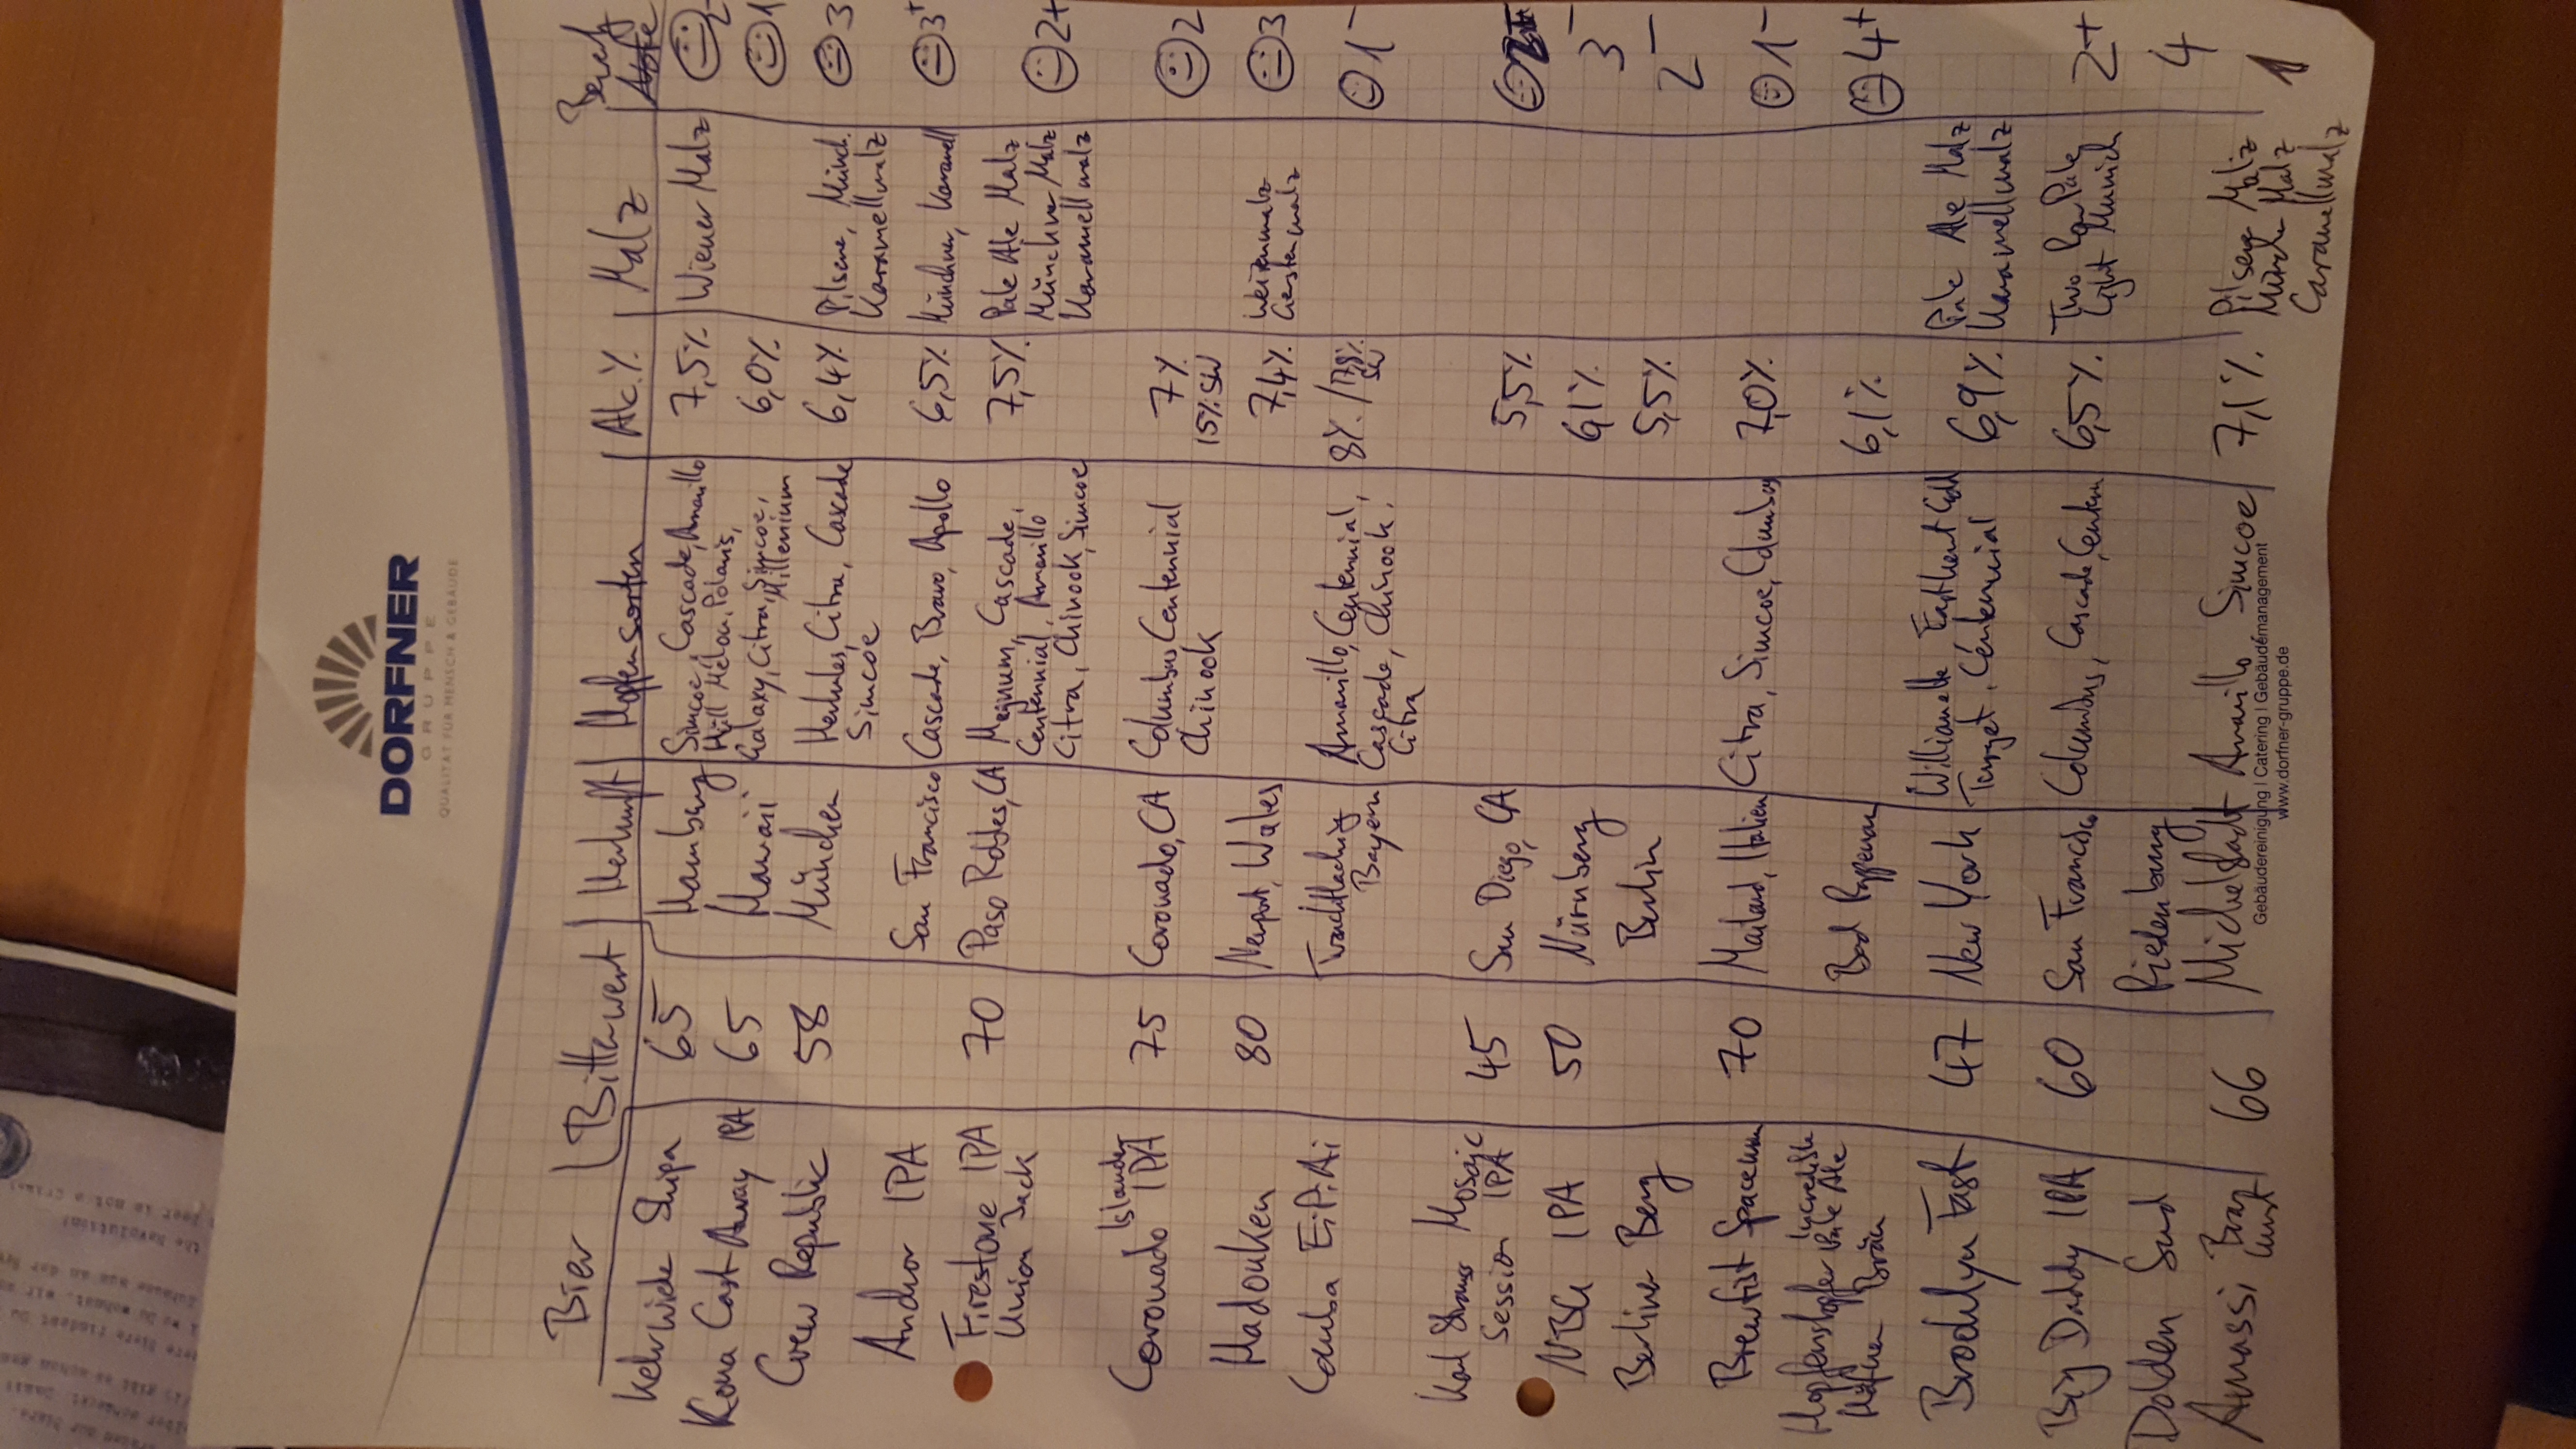 DORFNER
GRUPPE
QUALITÄT FÜR MENSCH & GEBÄUDE
Bier Bitterwert Herkunft Hopfensorten Alc.% Malz
Kehrwieder Shipa 65 Hamburg Simcoe, Cascade, Amarillo 7,5% Wiener Malz 2-
Hüll Melon, Polaris,
Kona Cast Away IPA 65 Hawaii Galaxy, Citra, Simcoe, 6,0% 1
Millenium
Crew Republic 58 München Herkules, Citra, Cascade 6,4% Pilsene, Münch. 3
Simcoe Karamellmalz
Anchor IPA San Francisco Cascade, Bravo, Apollo 6,5% Münchner, Karamell 3+
Firestone IPA 70 Paso Robles, CA Magnum, Cascade, 7,5% Pale Ale Malz 2+
Union Jack Centennial, Amarillo Münchner Malz
Citra, Chinook, Simcoe Karamellmalz
Islander
Coronado IPA 75 Coronado, CA Columbus, Centennial 7% 2
Chinook 15% SW
Hadouken 80 Newport, Wales 7,4% Weizenmalz 3
Gerstenmalz
Camba E.i.P.Ai Truchtlaching Amarillo, Centennial, 8% / 17,8% 1-
Bayern Cascade, Chinook, SW
Citra
Karl Strauss Mosaic 45 San Diego, CA 5,5%
Session IPA
NBG IPA 50 Nürnberg 6,1% 3-
Berliner Berg Berlin 5,5% 2-
Brewfist Spaceman 70 Mailand, Italien Citra, Simcoe, Columbus 7,0% 1-
Hopfenstopfer Incredible Bad Rappenau 6,1% 4+
Pale Ale
Häffner Bräu
Brooklyn East 47 New York Williamette EastKent Gold 6,9% Pale Ale Malz
Target, Centennial Karamellmalz
Big Daddy IPA 60 San Francisco Columbus, Cascade, Centen 6,5% Two Row Pale 2+
Light Munich
Dolden Sud Riedenburg 4
Amassi Brau 66 Michelstadt Amarillo Simcoe 7,1% Pilsener Malz 1
Münch Malz
Caramellmalz
Gebäudereinigung | Catering | Gebäudemanagement
www.dorfner-gruppe.de